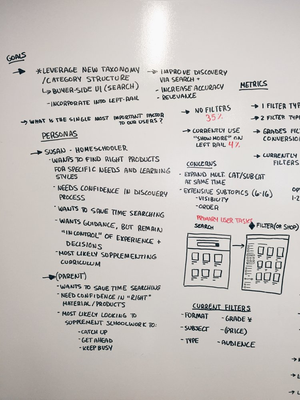 GOALS
→ *LEVERAGE NEW TAXONOMY
/CATEGORY STRUCTURE
↳ BUYER-SIDE UI (SEARCH)
- INCORPORATE INTO LEFT-RAIL
→ WHAT IS THE SINGLE MOST IMPORTANT FACTOR
TO OUR USERS?
→ IMPROVE DISCOVERY
VIA SEARCH +
- INCREASE ACCURACY
- RELEVANCE
PERSONAS
→ SUSAN - HOMESCHOOLER
- WANTS TO FIND RIGHT PRODUCTS
FOR SPECIFIC NEEDS AND LEARNING
STYLES
- NEEDS CONFIDENCE IN DISCOVERY
PROCESS
- WANTS TO SAVE TIME SEARCHING
- WANTS GUIDANCE, BUT REMAIN
"IN CONTROL" OF EXPERIENCE +
DECISIONS
- MOST LIKELY SUPPLEMENTING
CURRICULUM
→ (PARENT)
- WANTS TO SAVE TIME SEARCHING
- NEED CONFIDENCE IN "RIGHT"
MATERIAL/PRODUCTS
- MOST LIKELY LOOKING TO
SUPPLEMENT SCHOOLWORK TO:
- CATCH UP
- GET AHEAD
- KEEP BUSY
METRICS
→ NO FILTERS
35%
→ CURRENTLY USE
"SHOW MORE" ON
LEFT RAIL 4%
→ 1 FILTER
→ 2 FILTER
→ GRADES
→ CURRENTLY
CONCERNS
- EXPAND MULT CAT/SUBCAT
AT SAME TIME
- EXTENSIVE SUBTOPICS (6-16)
- VISIBILITY
- ORDER
PRIMARY USER TASKS
SEARCH
FILTER (OR SHOP)
CURRENT FILTERS
- FORMAT
- SUBJECT
- TYPE
- GRADE
- (PRICE)
- AUDIENCE